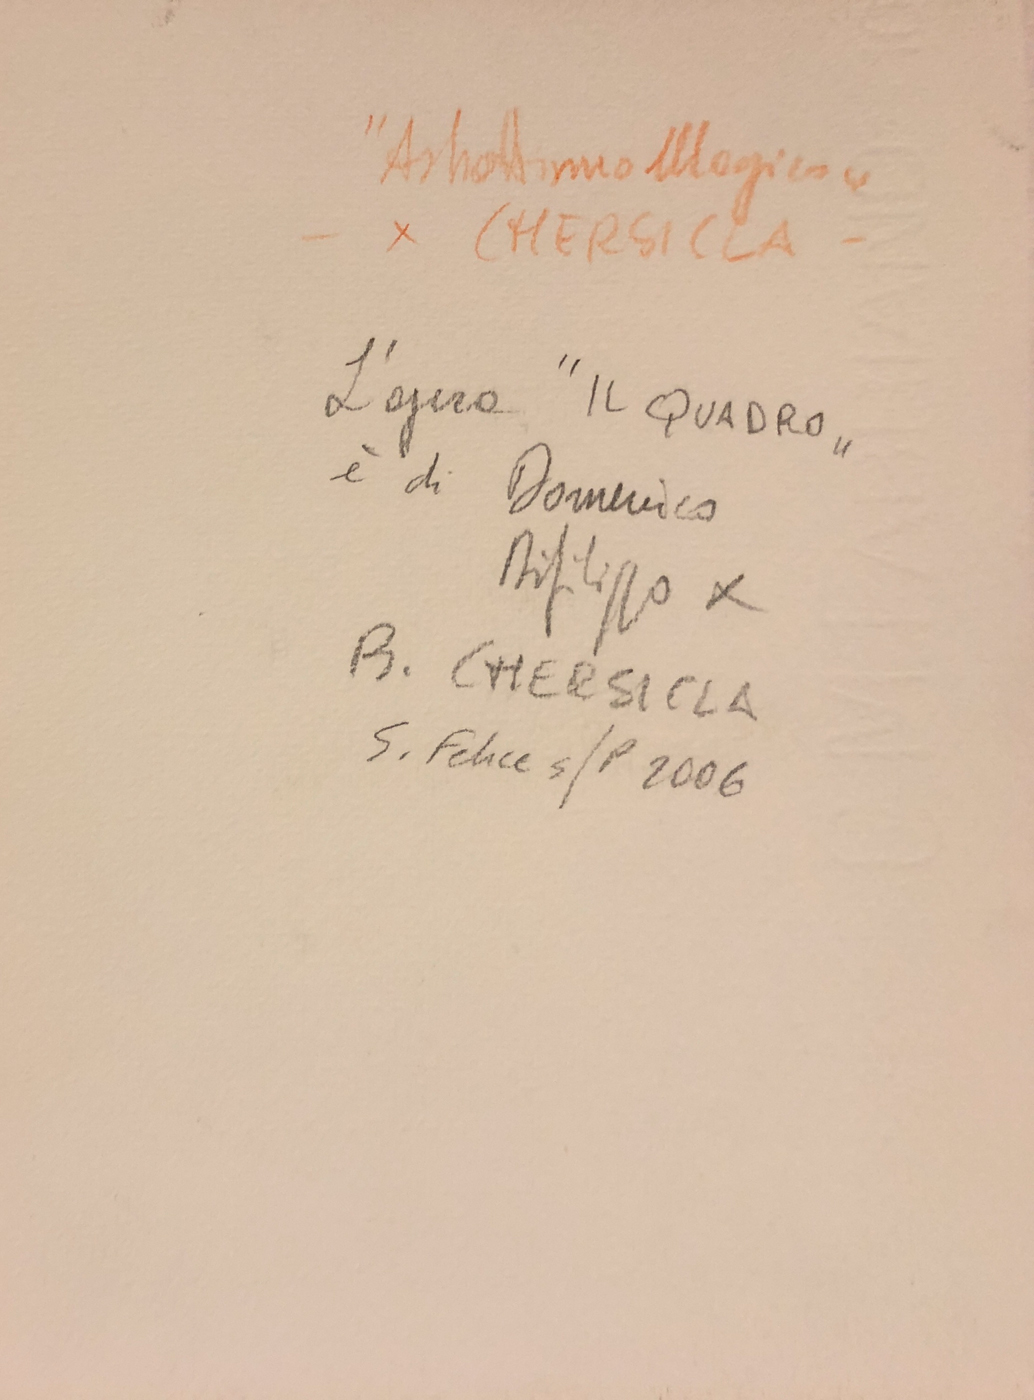 "Astrattismo Magico"
- x CHERSICLA -
L'opera "IL QUADRO"
è di Domenico
Difilippo x
B. CHERSICLA
S. Felice s/P 2006